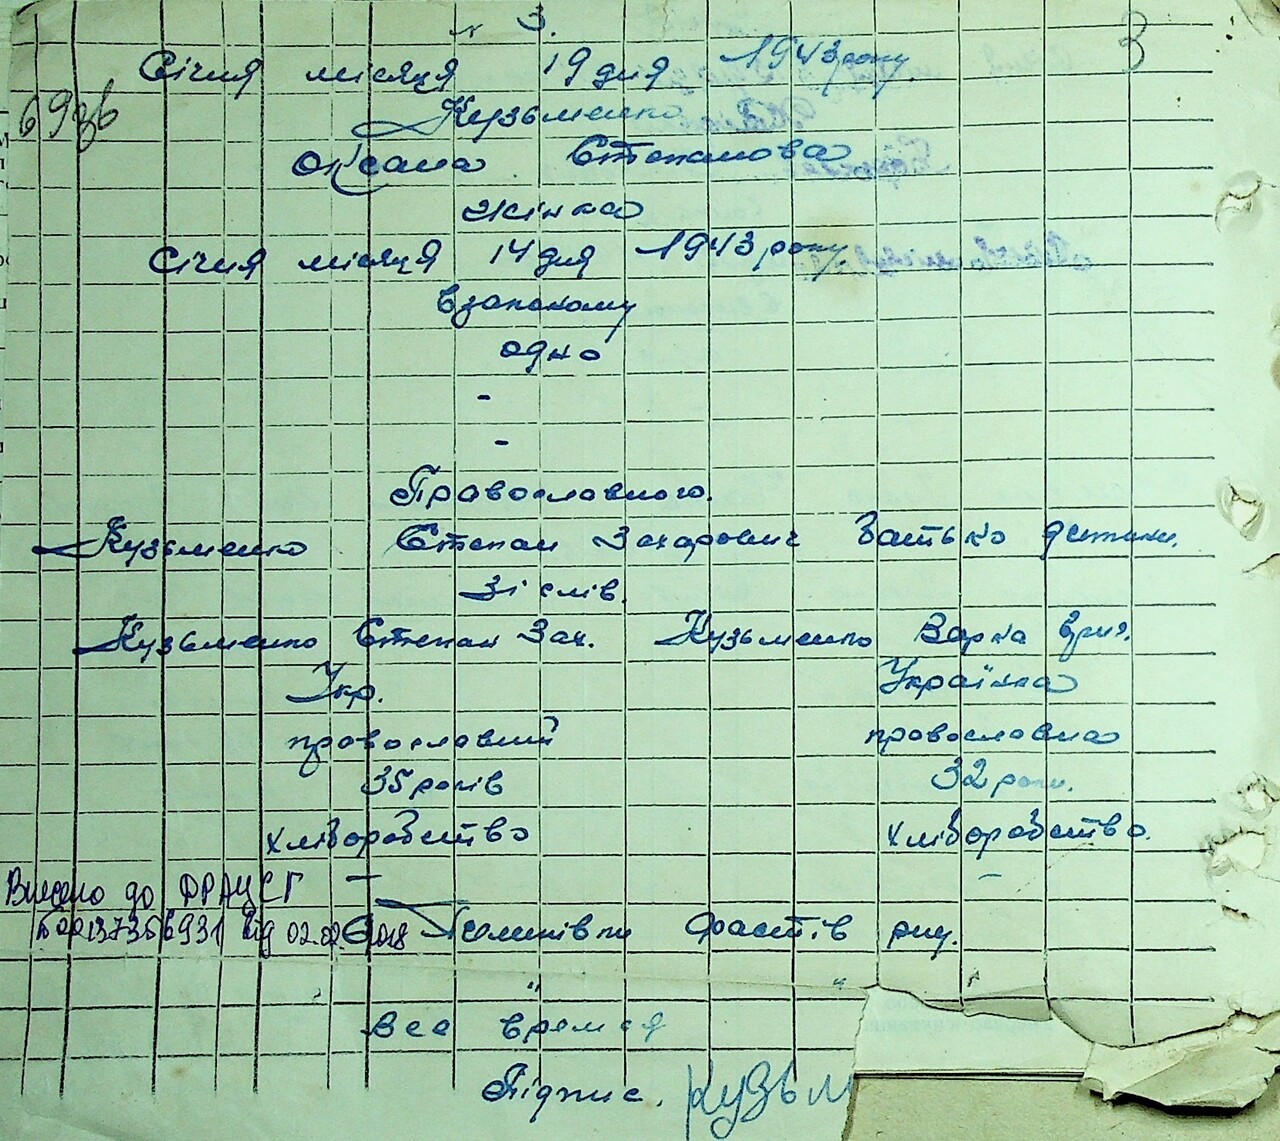 № 3.
3
Січня місяця 19 дня 1943 року
69зв
Кузьменко
Оксана Степанова
жінка
Січня місяця 14 дня 1943 року
взаконому
одно
-
-
Православного.
Кузьменко Степан Захарович Батько дитини.
Зі слів.
Кузьменко Степан Зах. Кузьменко Варка
Укр. Українка
православний православна
35 років 32 роки.
хліборобство хліборобство.
Внесено до ДРАЦСГ — –
від 02.02.2018 Фастів рну.
" "
Все время
Підпис. Кузьм